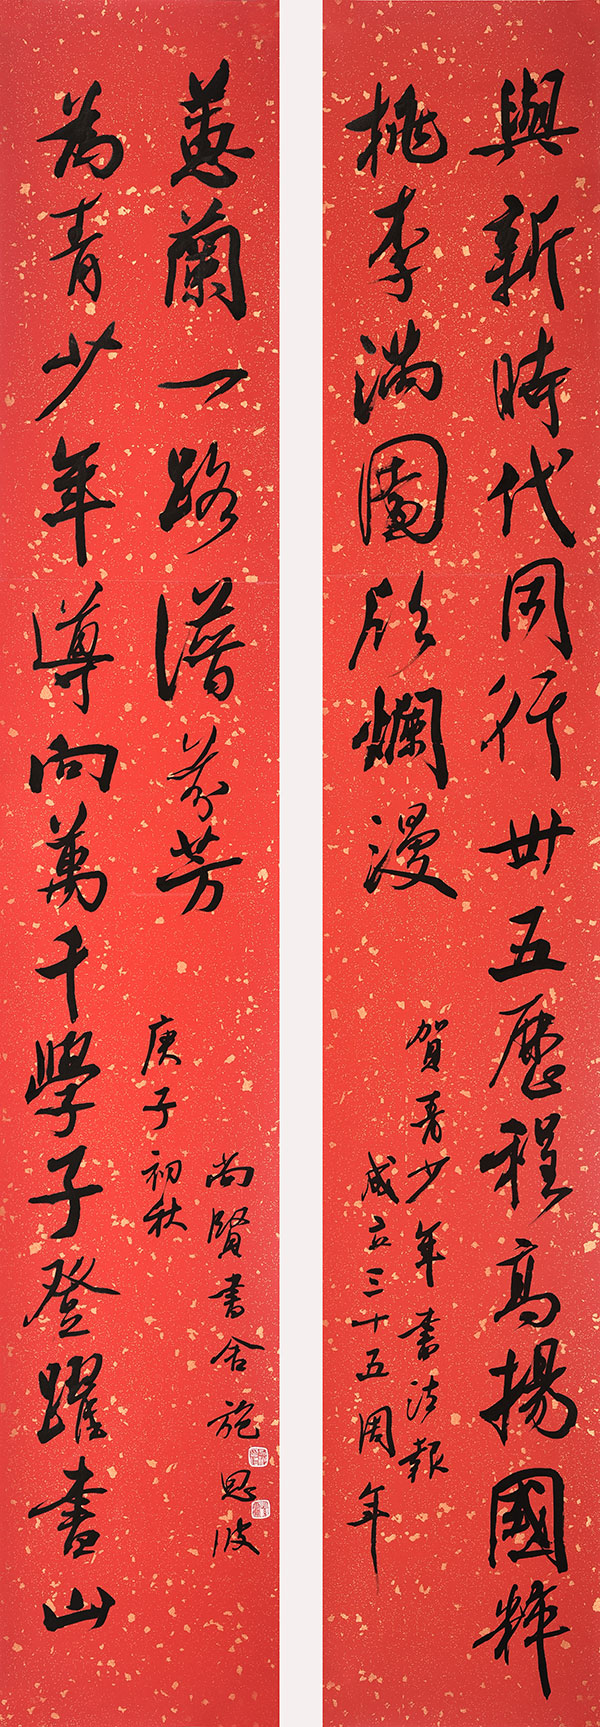 與新時代同行卅五歷程高揚國粹
桃李滿園欣爛漫
賀青少年書法報
成立三十五周年
為青少年導向萬千學子登躍書山
蕙蘭一路譜芬芳
庚子初秋
尚賢書舍施波